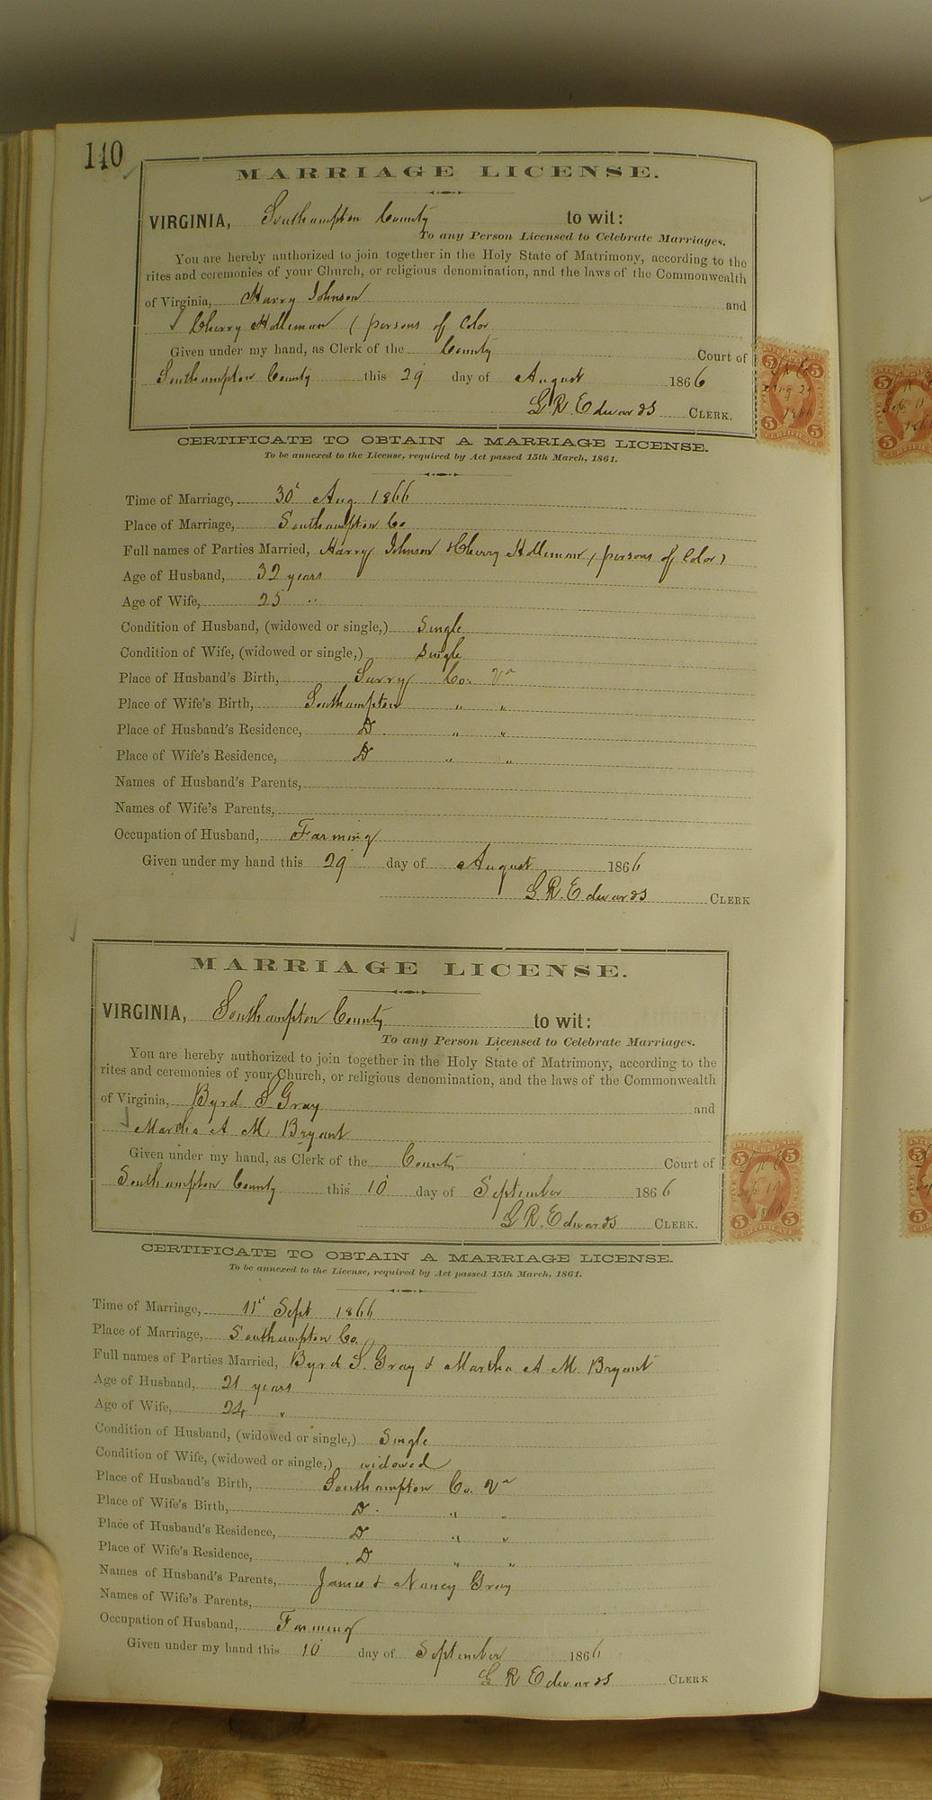 140
MARRIAGE LICENSE.
VIRGINIA, Southampton County to wit:
To any Person Licensed to Celebrate Marriages.
You are hereby authorized to join together in the Holy State of Matrimony, according to the
rites and ceremonies of your Church, or religious denomination, and the laws of the Commonwealth
of Virginia, Harry Johnson and
Cherry Holleman (persons of Color
Given under my hand, as Clerk of the County Court of
Southampton County this 29 day of August 1866
G R Edwards CLERK.
CERTIFICATE TO OBTAIN A MARRIAGE LICENSE.
To be annexed to the License, required by Act passed 15th March, 1861.
Time of Marriage, 30 Aug 1866
Place of Marriage, Southampton Co
Full names of Parties Married, Harry Johnson & Cherry Holleman (persons of Color)
Age of Husband, 32 years
Age of Wife, 25 "
Condition of Husband, (widowed or single,) Single
Condition of Wife, (widowed or single,) Single
Place of Husband's Birth, Surry Co. Va
Place of Wife's Birth, Southampton " "
Place of Husband's Residence, D " "
Place of Wife's Residence, D " "
Names of Husband's Parents,
Names of Wife's Parents,
Occupation of Husband, Farming
Given under my hand this 29 day of August 1866
G R. Edwards CLERK
MARRIAGE LICENSE.
VIRGINIA, Southampton County to wit:
To any Person Licensed to Celebrate Marriages.
You are hereby authorized to join together in the Holy State of Matrimony, according to the
rites and ceremonies of your Church, or religious denomination, and the laws of the Commonwealth
of Virginia, Byrd S Gray and
Martha A M. Bryant
Given under my hand, as Clerk of the County Court of
Southampton County this 10 day of September 1866
G R. Edwards CLERK.
CERTIFICATE TO OBTAIN A MARRIAGE LICENSE.
To be annexed to the License, required by Act passed 15th March, 1861.
Time of Marriage, 11 Sept 1866
Place of Marriage, Southampton Co.
Full names of Parties Married, Byrd S. Gray & Martha A M. Bryant
Age of Husband, 21 years
Age of Wife, 24 "
Condition of Husband, (widowed or single,) Single
Condition of Wife, (widowed or single,) widowed
Place of Husband's Birth, Southampton Co. Va
Place of Wife's Birth, D. " "
Place of Husband's Residence, D " "
Place of Wife's Residence, D " "
Names of Husband's Parents, James & Nancy Gray
Names of Wife's Parents,
Occupation of Husband, Farming
Given under my hand this 10 day of September 1866
G R Edwards CLERK